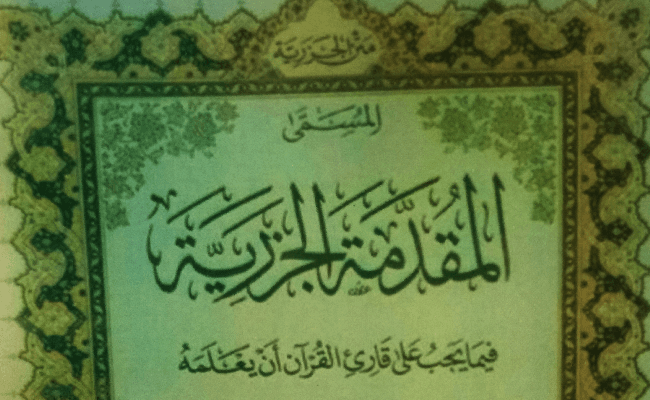 متن الجزرية
المسمى
المقدمة الجزرية
فيما يجب على قارئ القرآن أن يعلمه